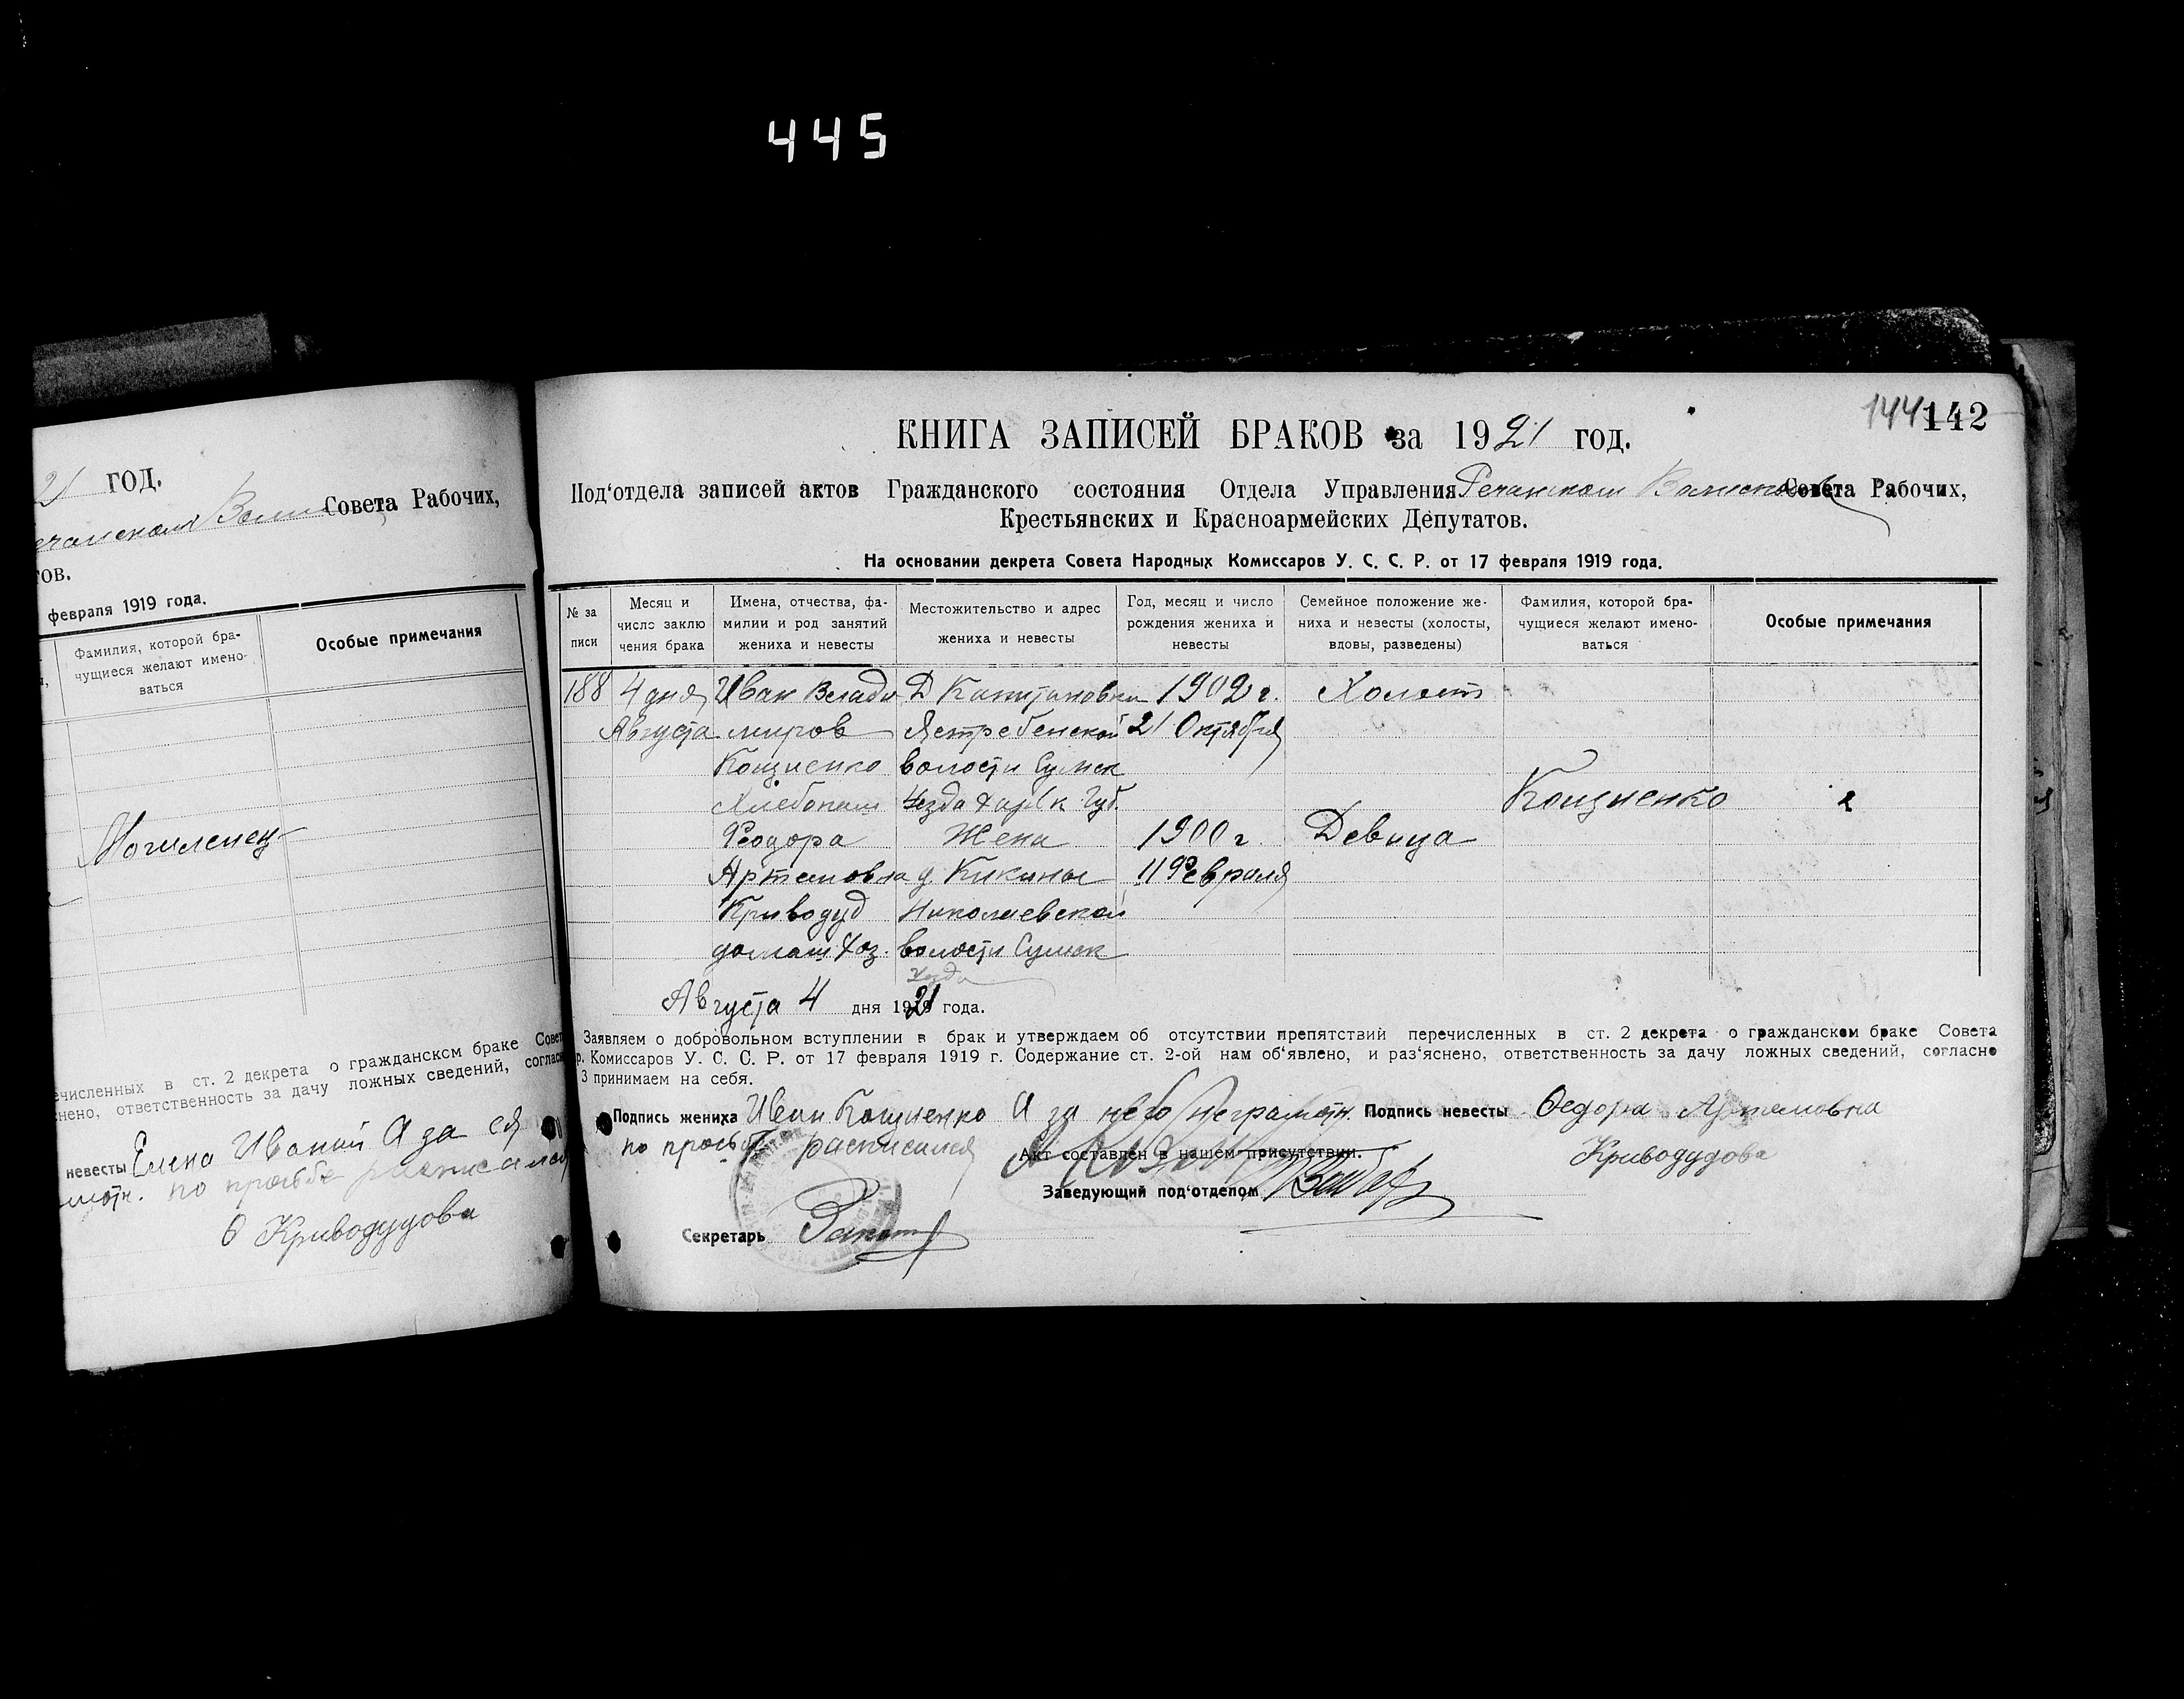 445
21 год.
Совета Рабочих,
тов.
февраля 1919 года.
Фамилия, которой бра-
чущиеся желают имено-
ваться
Особые примечания
Могиленец
ечисленных в ст. 2 декрета о гражданском браке Совет
нено, ответственность за дачу ложных сведений, согласн
невесты Елена Иваной А за ея
мотн. по просьбе расписалась
О Криводудова
144 142
КНИГА ЗАПИСЕЙ БРАКОВ за 1921 год.
Под'отдела записей актов Гражданского состояния Отдела Управления Речанском Волисполк Совета Рабочих,
Крестьянских и Красноармейских Депутатов.
На основании декрета Совета Народных Комиссаров У. С. С. Р. от 17 февраля 1919 года.
№ за
писи
Месяц и
число заклю
чения брака
Имена, отчества, фа-
милии и род занятий
жениха и невесты
Местожительство и адрес
жениха и невесты
Год, месяц и число
рождения жениха и
невесты
Семейное положение же-
ниха и невесты (холосты,
вдовы, разведены)
Фамилия, которой бра-
чущиеся желают имено-
ваться
Особые примечания
188 4 дня Иван Влади Д Капитановка 1902 г. Холост
Августа миров Ястребенской 21 Октября
Кощиенко волости Сумск
Хлебопаш Уезда Харьк Губ. Кощиенко
Феодора Жена 1900 г. Девица
Артемовна д. Кикины 11 Февраля
Криводуд Николаевской
домаш хоз. волости Сумск
уезда
Августа 4 дня 1921 года.
Заявляем о добровольном вступлении в брак и утверждаем об отсутствии препятствий перечисленных в ст. 2 декрета о гражданском браке Совета
р. Комиссаров У. С. С. Р. от 17 февраля 1919 г. Содержание ст. 2-ой нам об'явлено, и раз'яснено, ответственность за дачу ложных сведений, согласно
3 принимаем на себя.
Подпись жениха Иван Кощиенко А за него неграмотн. Подпись невесты Федора Артемовна
по просьб расписался Криводудова
Акт составлен в нашем присутствии.
Заведующий под'отделом
Секретарь